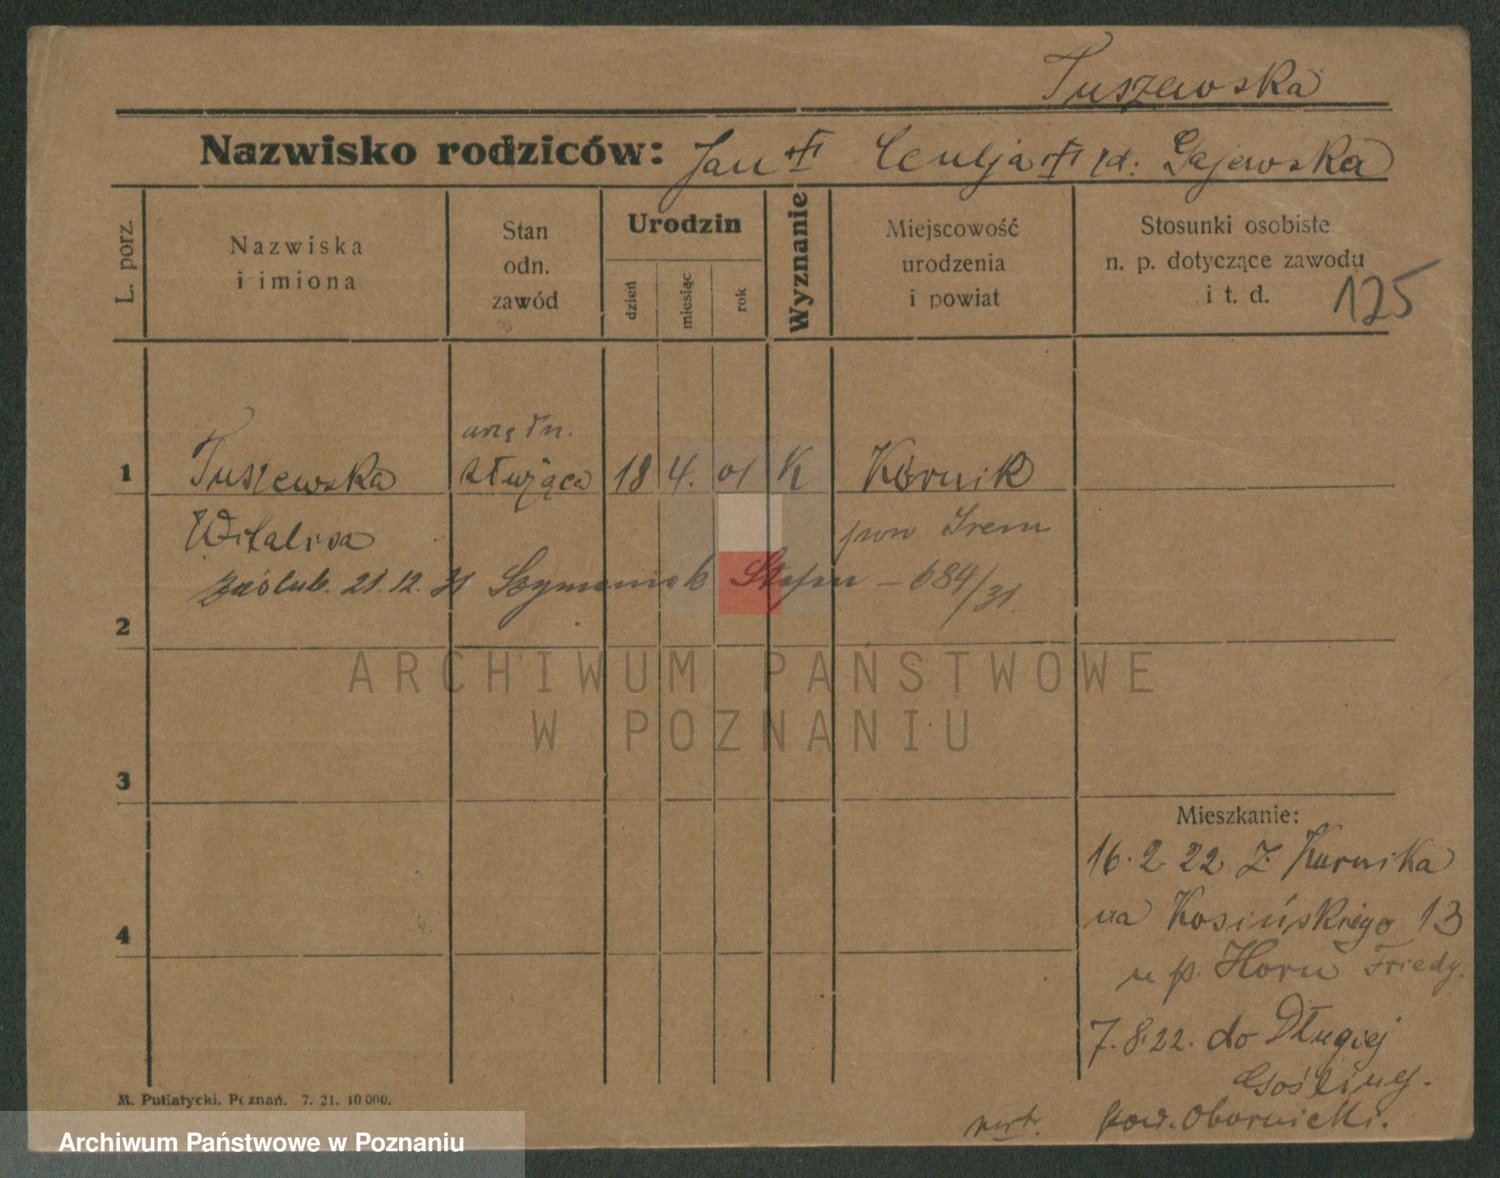 Tuszewska
Nazwisko rodziców: Jan Gajewska
L. porz.
Nazwiska
i imiona
Stan
odn.
zawód
Urodzin
dzień
miesiąc
rok
Wyznanie
Miejscowość
urodzenia
i powiat
Stosunki osobiste
n. p. dotyczące zawodu
i t. d.
125
1
Tuszewska
służąca
18 4. 01 K
Kórnik
Witalisa
pow Śrem
zaślub. 21.12.31 Szymaniak Stefan – 684/31.
2
ARCHIWUM PAŃSTWOWE
W POZNANIU
3
4
Mieszkanie:
16.2 22 z Kurnika
na Kosińskiego 13
u p. Horn Friedy.
7.8.22. do Długiej
Gośliny.
pow. Obornicki.
M. Putiatycki, Poznań. 7. 21. 10 000.
Archiwum Państwowe w Poznaniu